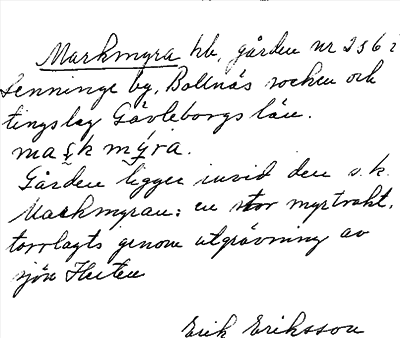 Markmyra hb, gården nr 256 i
Senninge by, Bollnäs socken och
tingslag Gävleborgs län.
mark mýra.
Gården ligger invid den s.k.
Markmyran: en stor myrtrakt,
torrlagts genom utgrävning av
sjön
Erik Eriksson